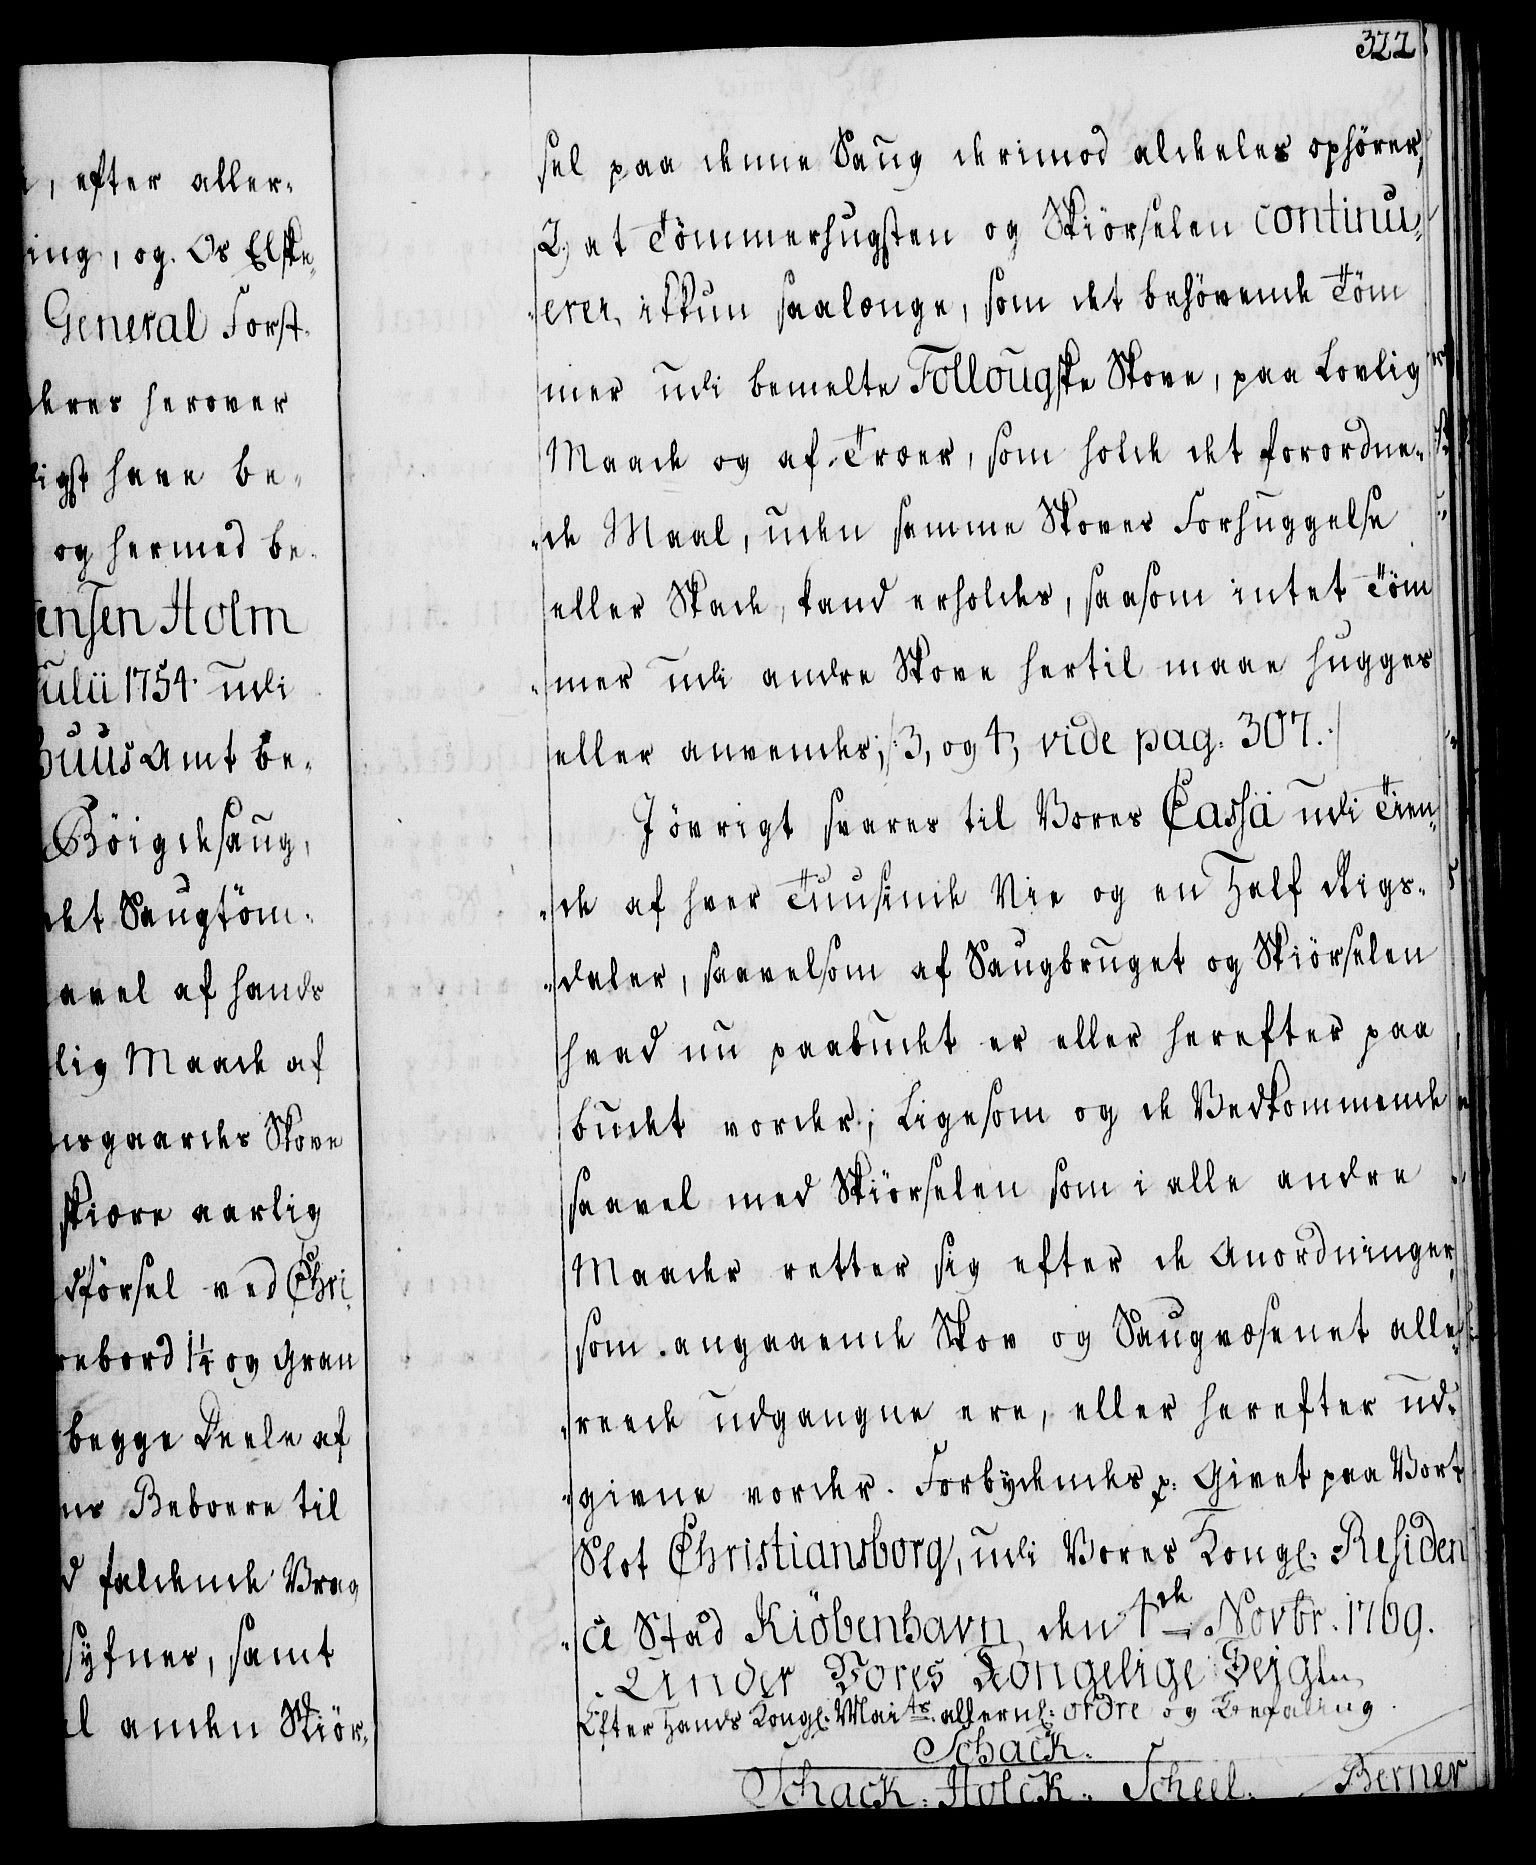 322
, efter aller-
ing, og Os Elske-
General Forst-
deres herover
ligst have be-
og hermed be-
ensen Holm
Julii 1754 udi
huus Amt be-
Böigdesaug,
det Saugtöm-
saavel af hands
lig Maade af
gaardes Skove
skiære aarlig
dförsel ved Chri-
bord 1¼ og Gran
begge Deele af
Beboere til
d faldende Vrag
samt
l anden Skiör-
sel paa denne Saug derimod aldeeles ophörer,
2, at Tömmerhugsten og Skiörselen continu-
erer ikkun saalænge, som det behövende Töm
mer udi bemelte Follougske Skove, paa Lovlig
Maade og af Træer, som holde det forordne-
de Maal, uden samme Skoves Forhuggelse
eller Skade, kand erholdes, saasom intet Töm
mer udi andre Skove hertil maae hugges
eller anvendes; /: 3, og 4, vide pag: 307. :/
I övrigt svares til Vores Cassa udi Tien-
de af hver Tuusinde Nie og en Half Rigs-
daler, saavelsom af Saugbruget og Skiörselen
hvad nu paabudet er eller herefter paa
budet vorder; Ligesom og de Vedkommende
saavel med Skiörselen som i alle andre
Maader retter sig efter de Anordninger,
som angaaende Skov og Saugvæsenet alle-
reede udgangne ere, eller herefter ud-
givne vorder. Forbydendes p: Givet paa Vort
Slot Christiansborg, udi Vores Kongl: Residen
ce Stad Kiöbenhavn, den 1de Novbr. 1769.
Under Vores Kongelige Seigln
Efter Hands Kongl: Maits. allernl: ordre og Befaling.
Schack.
Schack. Holck. Scheel. Berner